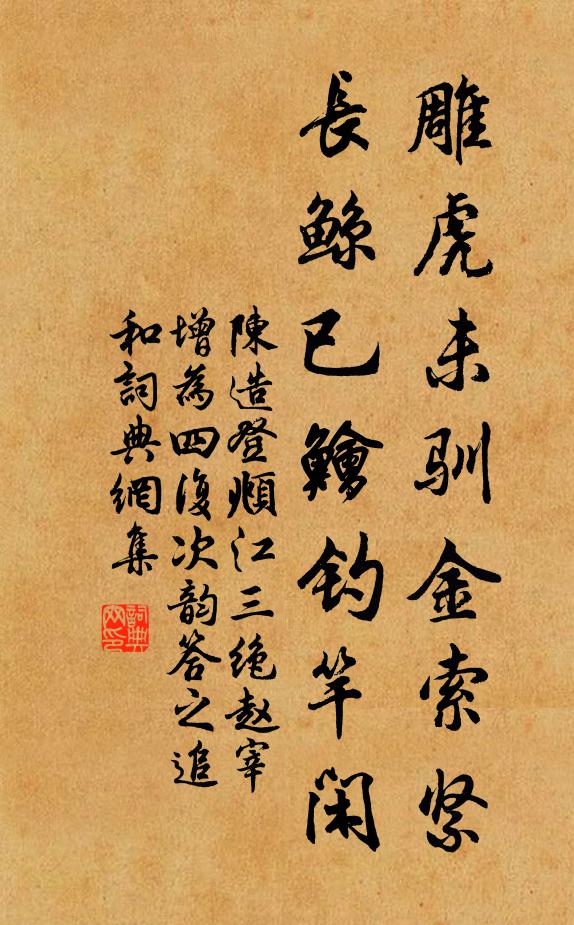 雕虎未驯金索紧
長鯨已鱠钓竿閑
陳造登頫江三绝趙宰
增為四復次韵答之追
和詞典網集
詞典网印